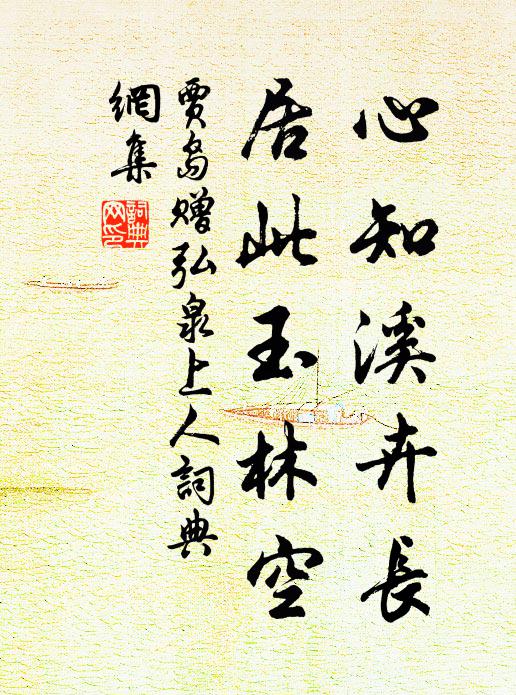 心知溪卉長
居此玉林空
賈島贈弘泉上人詞典
網集
詞典
网印